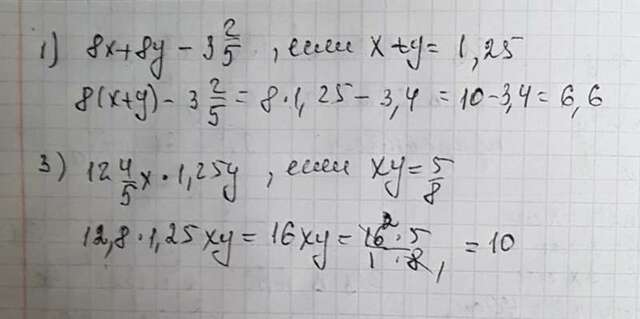 1) 8x+8y - 3 2/5 , если x+y = 1,25
8(x+y) - 3 2/5 = 8·1,25 - 3,4 = 10-3,4 = 6,6
3) 12 4/5 x · 1,25y , если xy = 5/8
12,8·1,25xy = 16xy = 16² · 5 / 1 · 8₁ = 10